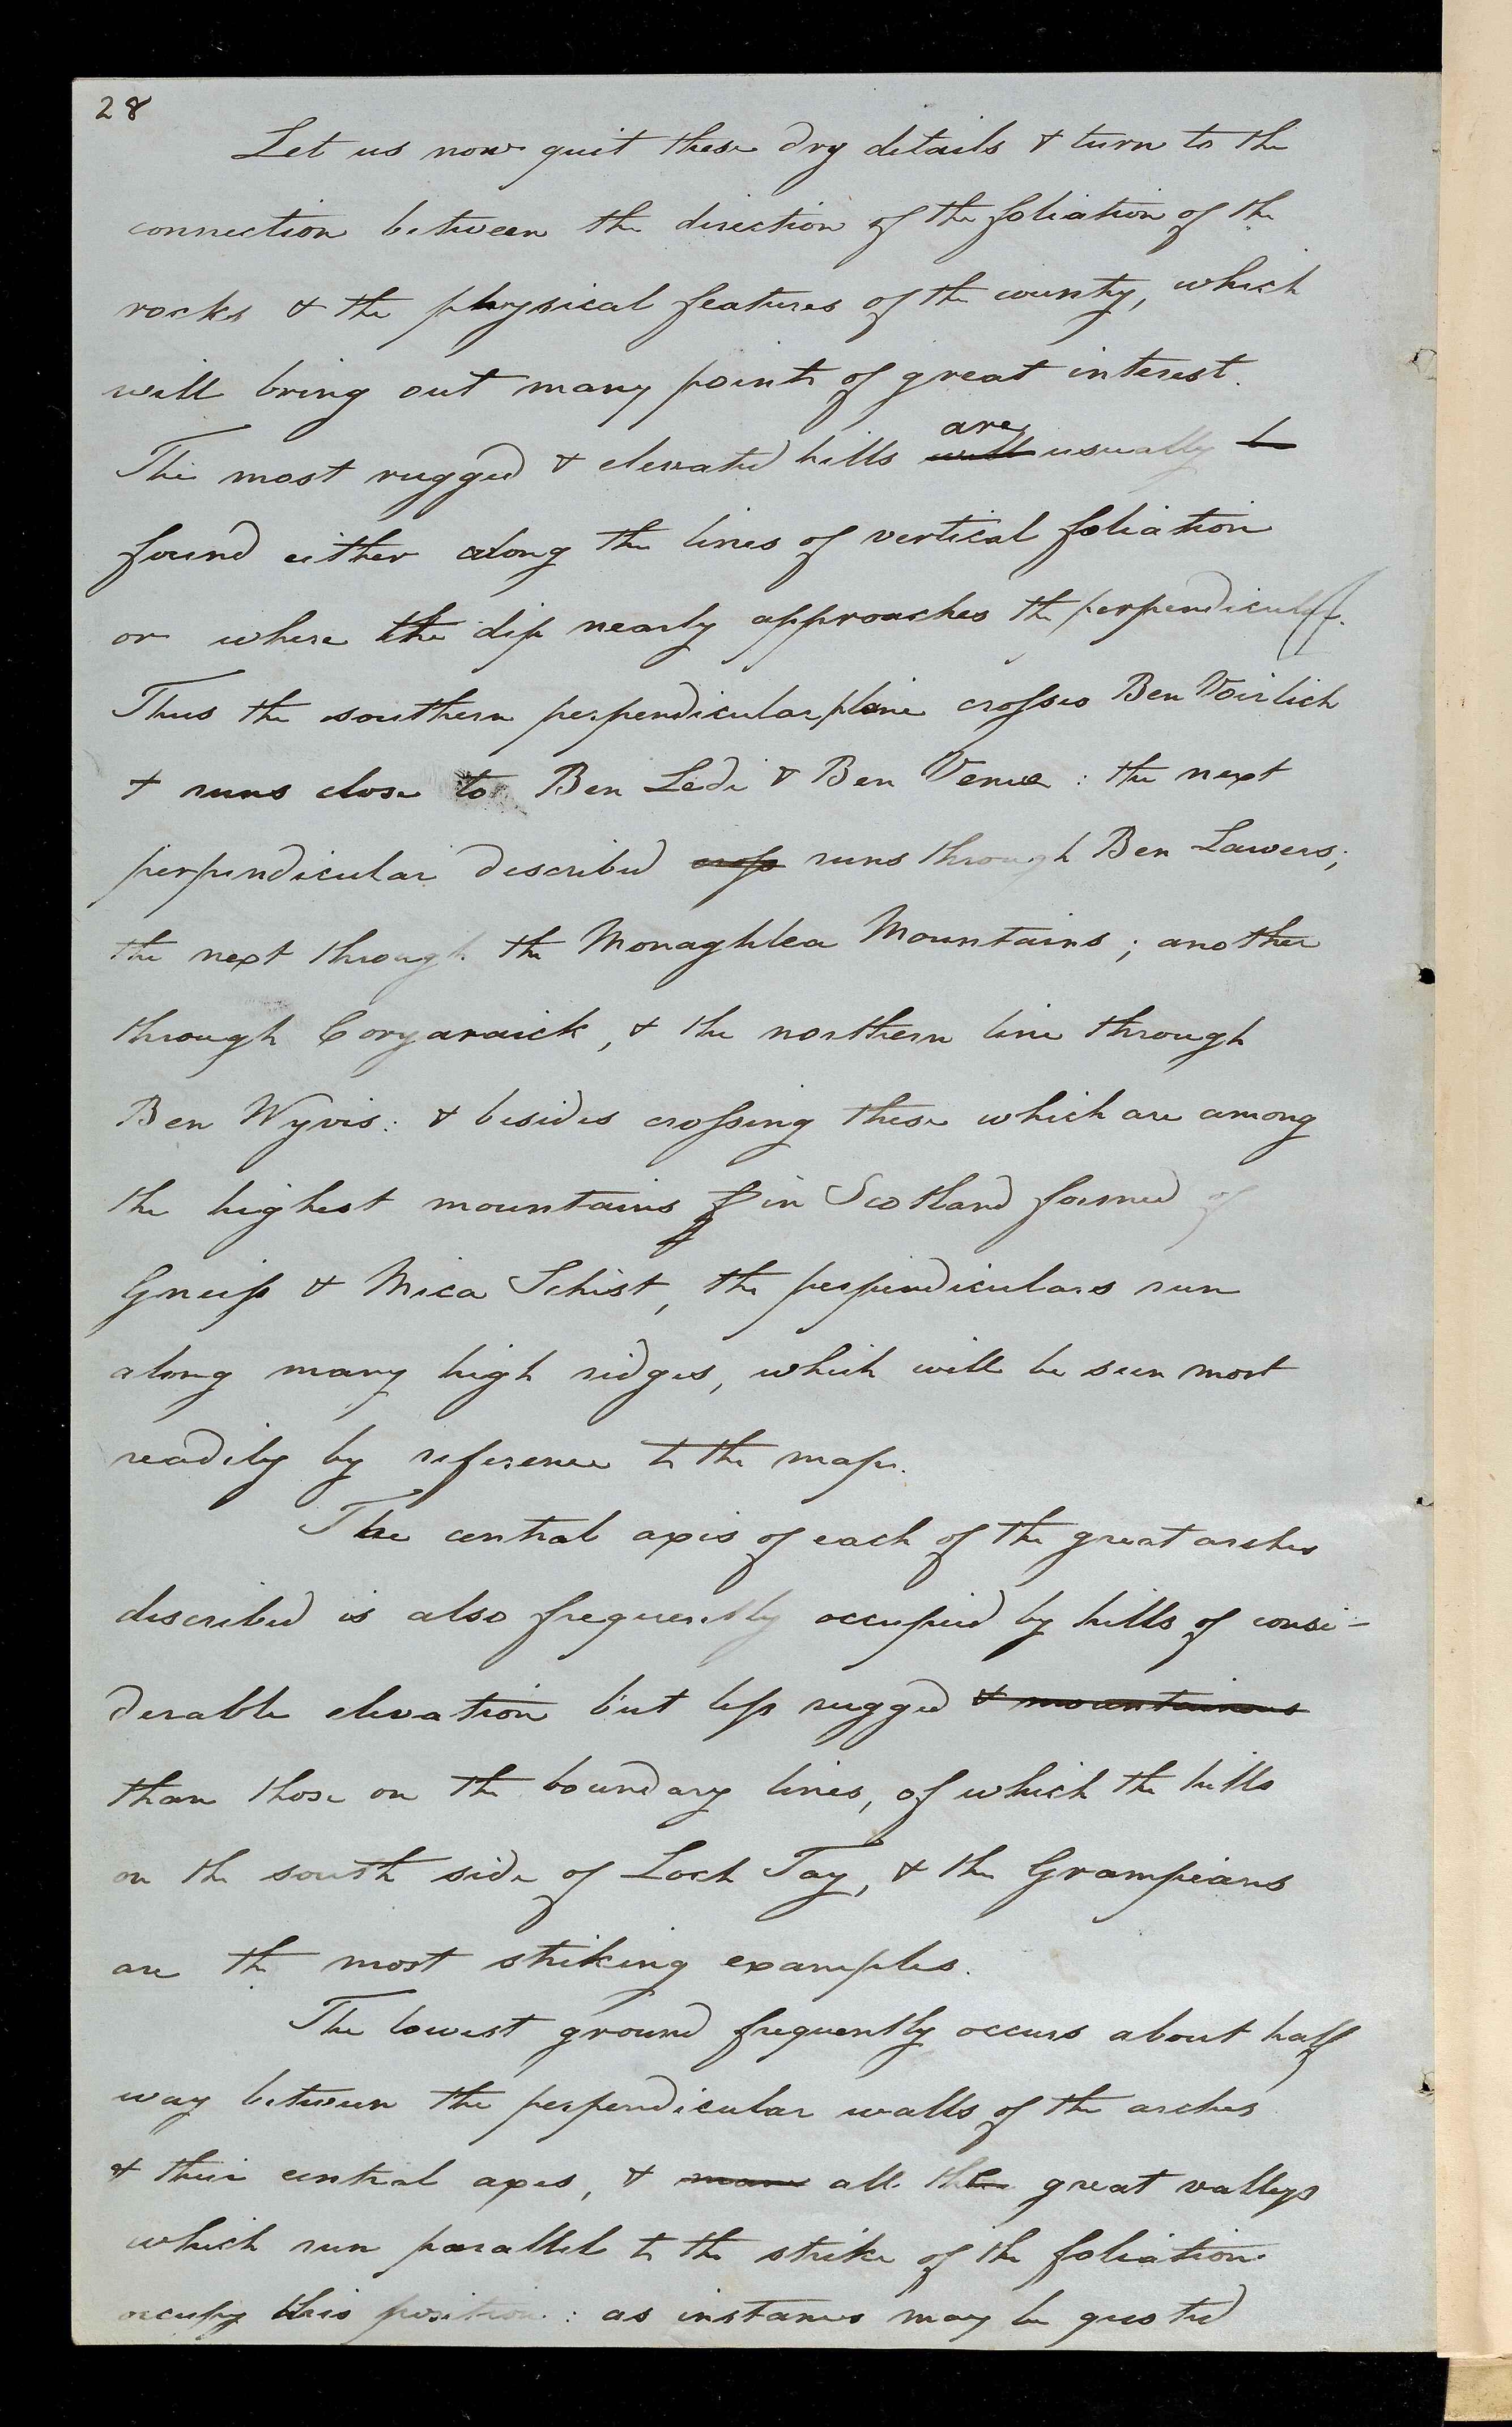 28
Let us now quit these dry details & turn to the
connection between the direction of the foliation of the
rocks & the physical features of the county, which
will bring out many points of great interest.
The most rugged & elevated hills will are usually be
found either along the lines of vertical foliation
or where the dip nearly approaches the perpendicular.
Thus the southern perpendicular plane crosses Ben Voirlich
& runs close to Ben Ledi & Ben Venue : the next
perpendicular described cross runs through Ben Lawers;
the next through the Monaghlea Mountains ; another
through Coryaraick, & the northern line through
Ben Wyvis : & besides crossing these which are among
the highest mountains of in Scotland formed of
Gneiss & Mica Schist, the perpendiculars run
along many high ridges, which will be seen most
readily by reference to the map.
The central axis of each of the great arches
described is also frequently occupied by hills of consi-
derable elevation but less rugged & mountainous
than those on the boundary lines, of which the hills
on the south side of Loch Tay, & the Grampians
are the most striking examples.
The lowest ground frequently occurs about half
way between the perpendicular walls of the arches
& their central axes, & many all the great valleys
which run parallel to the strike of the foliation
occupy this position : as instances may be quoted